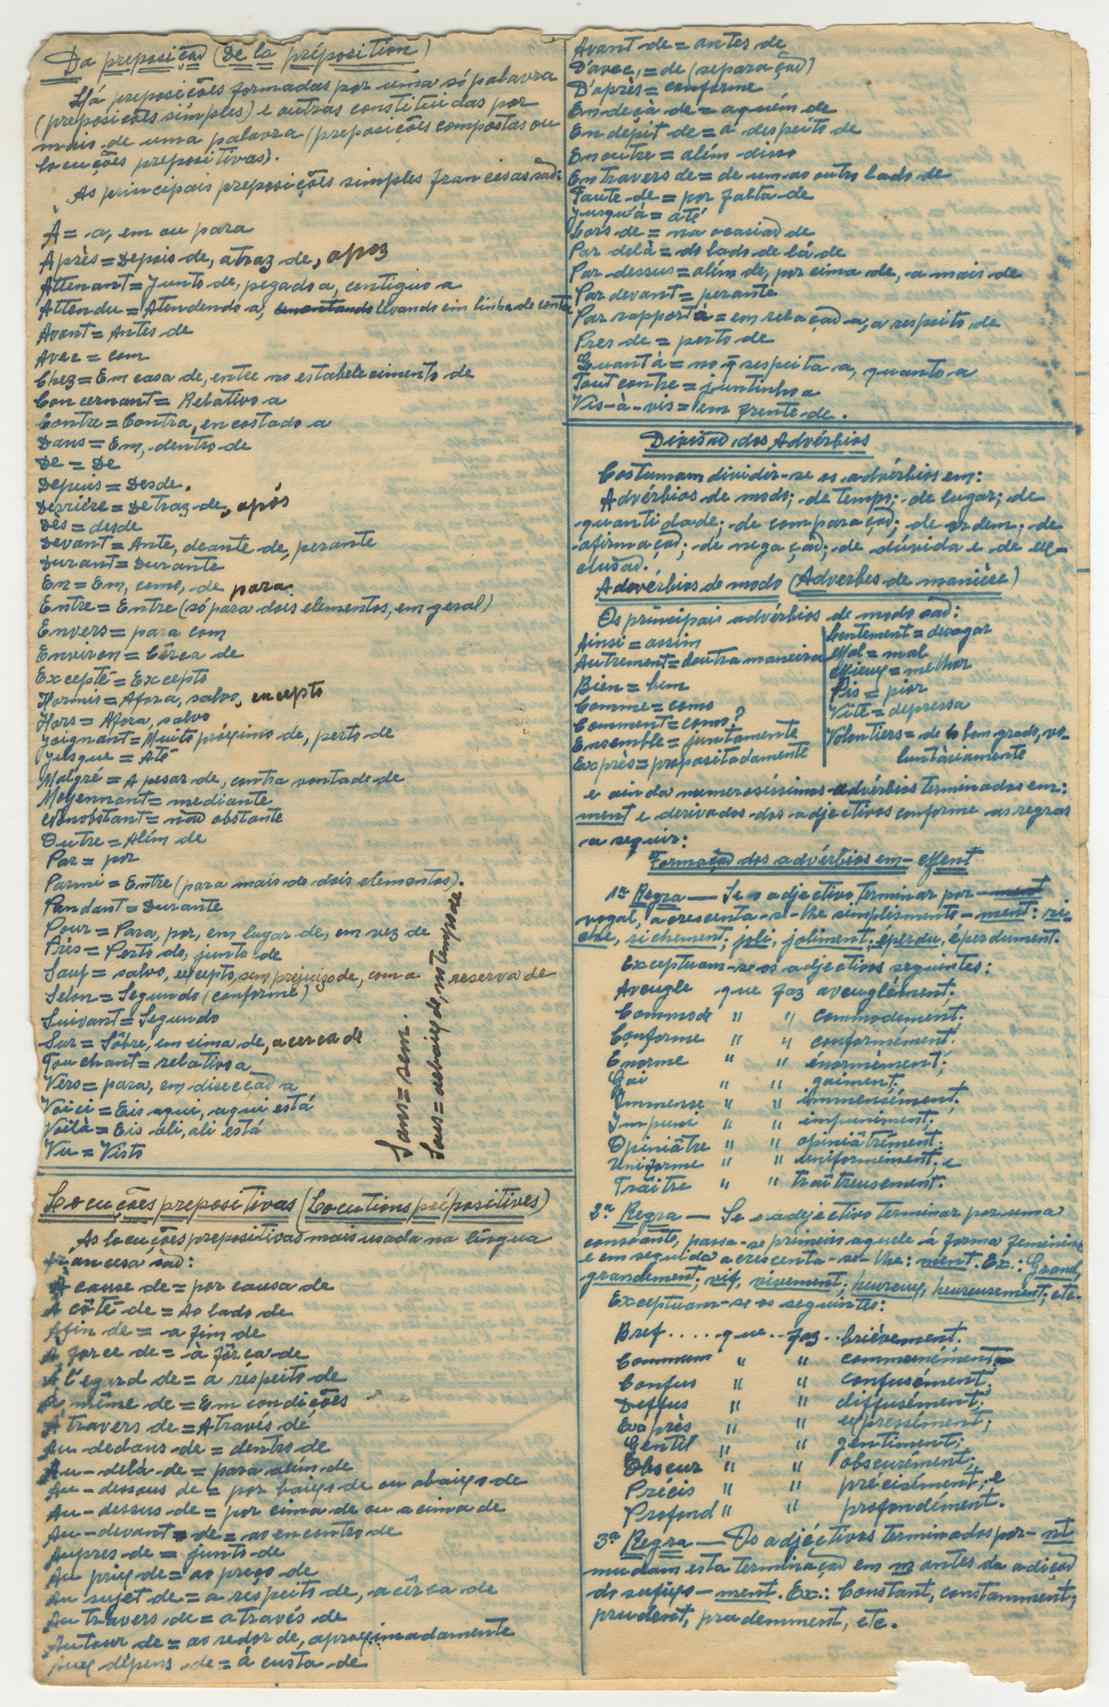 Da preposição (De la préposition)
Há preposições formadas por uma só palavra
(preposições simples) e outras constituídas por
mais de uma palavra (preposições compostas ou
locuções prepositivas).
As principais preposições simples francesas são:
À = a, em ou para
Après = Depois de, atraz de, apoz
Attenant = Junto de, pegado a, contiguo a
Attendu = Atendendo a, levando em linha de conta
Avant = Antes de
Avec = com
Chez = Em casa de, entre no estabelecimento de
Concernant = Relativo a
Contre = Contra, encostado a
Dans = Em, dentro de
De = De
Depuis = Desde.
Derrière = Detraz de, após
Dès = desde
Devant = Ante, deante de, perante
Durant = Durante
En = Em, como, de para.
Entre = Entre (só para dois elementos, em geral)
Envers = para com
Environ = Cêrca de
Excepté = Excepto
Hormis = Afora, salvo, excepto
Hors = Afora, salvo
Joignant = Muito próximo de, perto de
Jusque = Até
Malgré = A pesar de, contra vontade de
Moyennant = mediante
Nonobstant = não obstante
Outre = Além de
Par = por
Parmi = Entre (para mais de dois elementos).
Pendant = Durante
Pour = Para, por, em lugar de, em vez de
Près = Perto de, junto de
Sauf = salvo, excepto, sem prejuizo de, com a reserva de
Selon = Segundo (conforme)
Suivant = Segundo
Sur = Sôbre, em cima de, acerca de
Touchant = relativo a
Vers = para, em direcção a
Voici = Eis aqui, aqui está
Voilà = Eis ali, ali está
Vu = Visto
Sans = sem.
Sous = debaixo de, no tempo de
Locuções prepositivas (Locutions prépositives)
As locuções prepositivas mais usada na língua
francesa são:
À cause de = por causa de
À côté de = Ao lado de
Afin de = a fim de
À force de = à fôrça de
À l'égard de = a respeito de
À même de = Em condições
À travers de = Através de
Au-dedans de = dentro de
Au-delà de = para além de
Au-dessous de = por baixo de ou abaixo de
Au-dessus de = por cima de ou acima de
Au-devant de = ao encontro de
Auprès de = junto de
Au prix de = ao preço de
Au sujet de = a respeito de, acêrca de
Au travers de = através de
Autour de = ao redor de, aproximadamente
Aux dépens de = à custa de
Avant de = antes de
D'avec = de (separação)
D'après = conforme
En deçà de = aquém de
En dépit de = a despeito de
En outre = além disso
En travers de = de um ao outro lado de
Faute de = por falta de
Jusqu'à = até
Lors de = na ocasião de
Par delà = do lado de lá de
Par dessus = além de, por cima de, a mais de
Par devant = perante
Par rapport à = em relação a, a respeito de
Près de = perto de
Quant à = no q̄ respeita a, quanto a
Tout contre = juntinho a
Vis-à-vis = em frente de.
Divisão dos Advérbios
Costumam dividir-se os advérbios em:
Advérbios de modo; de tempo; de lugar; de
quantidade; de comparação; de ordem; de
afirmação; de negação; de dúvida e de ex-
clusão.
Advérbios de modo (Adverbes de manière)
Os principais advérbios de modo são:
Ainsi = assim
Autrement = doutra maneira
Bien = bem
Comme = como
Comment = como?
Ensemble = juntamente
Exprès = propositadamente
Lentement = devagar
Mal = mal
Mieux = melhor
Pis = pior
Vite = depressa
Volontiers = de bom grado, vo-
luntàriamente
e ainda numerosíssimos advérbios terminados em:
ment e derivados dos adjectivos conforme as regras
a seguir:
Formação dos advérbios em - Ment
1ª Regra — Se o adjectivo terminar por ment
vogal, acrescenta-se-lhe simplesmente - ment: ri-
che, richement; joli, joliment; éperdu, éperdument.
Exceptuam-se os adjectivos seguintes:
Aveugle que faz aveuglément;
Commode " " commodément;
Conforme " " conformément;
Énorme " " énormément;
Gai " " gaiment;
Immense " " immensément;
Impune " " impunément;
Opiniâtre " " opiniâtrément;
Uniforme " " uniformément; e
Traître " " traîtreusement.
2ª Regra — Se o adjectivo terminar por uma
consoante, passa-se primeiro aquele à forma feminina
e em seguida acrescenta-se-lhe: ment. Ex.: Grand,
grandement; vif, vivement; heureux, heureusement; etc.
Exceptuam-se os seguintes:
Bref.....que..faz..brièvement.
Commun " " communément;
Confus " " confusément;
Diffus " " diffusément;
Exprès " " expressément;
Gentil " " gentiment;
Obscur " " obscurément;
Précis " " précisément; e
Profond " " profondément.
3ª Regra — Os adjéctivos terminados por - nt
mudam esta terminação em m antes da adição
do sufixo - ment. Ex.: Constant, constamment;
prudent, prudemment, etc.